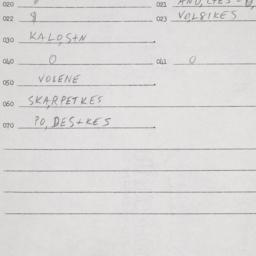 020 021
022 8 023 VOL8IKES
030 KALOS+N
040 0 041 0
050 VOLENE
060 SKARPETKES
070 PO, DES+KES